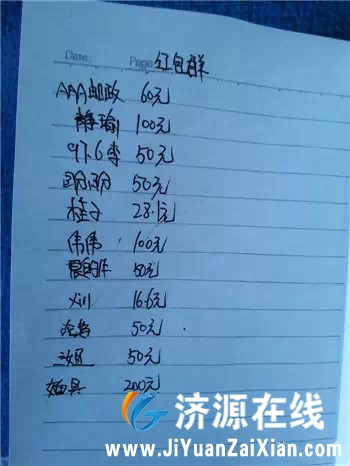 Date. Page. 红包群
AAA邮政 60元
静瑜 100元
50元
盼盼 50元
柱子 28.1元
伟伟 100元
50元
16.6元
50元
50元
200元
济源在线
www.JiYuanZaiXian.com